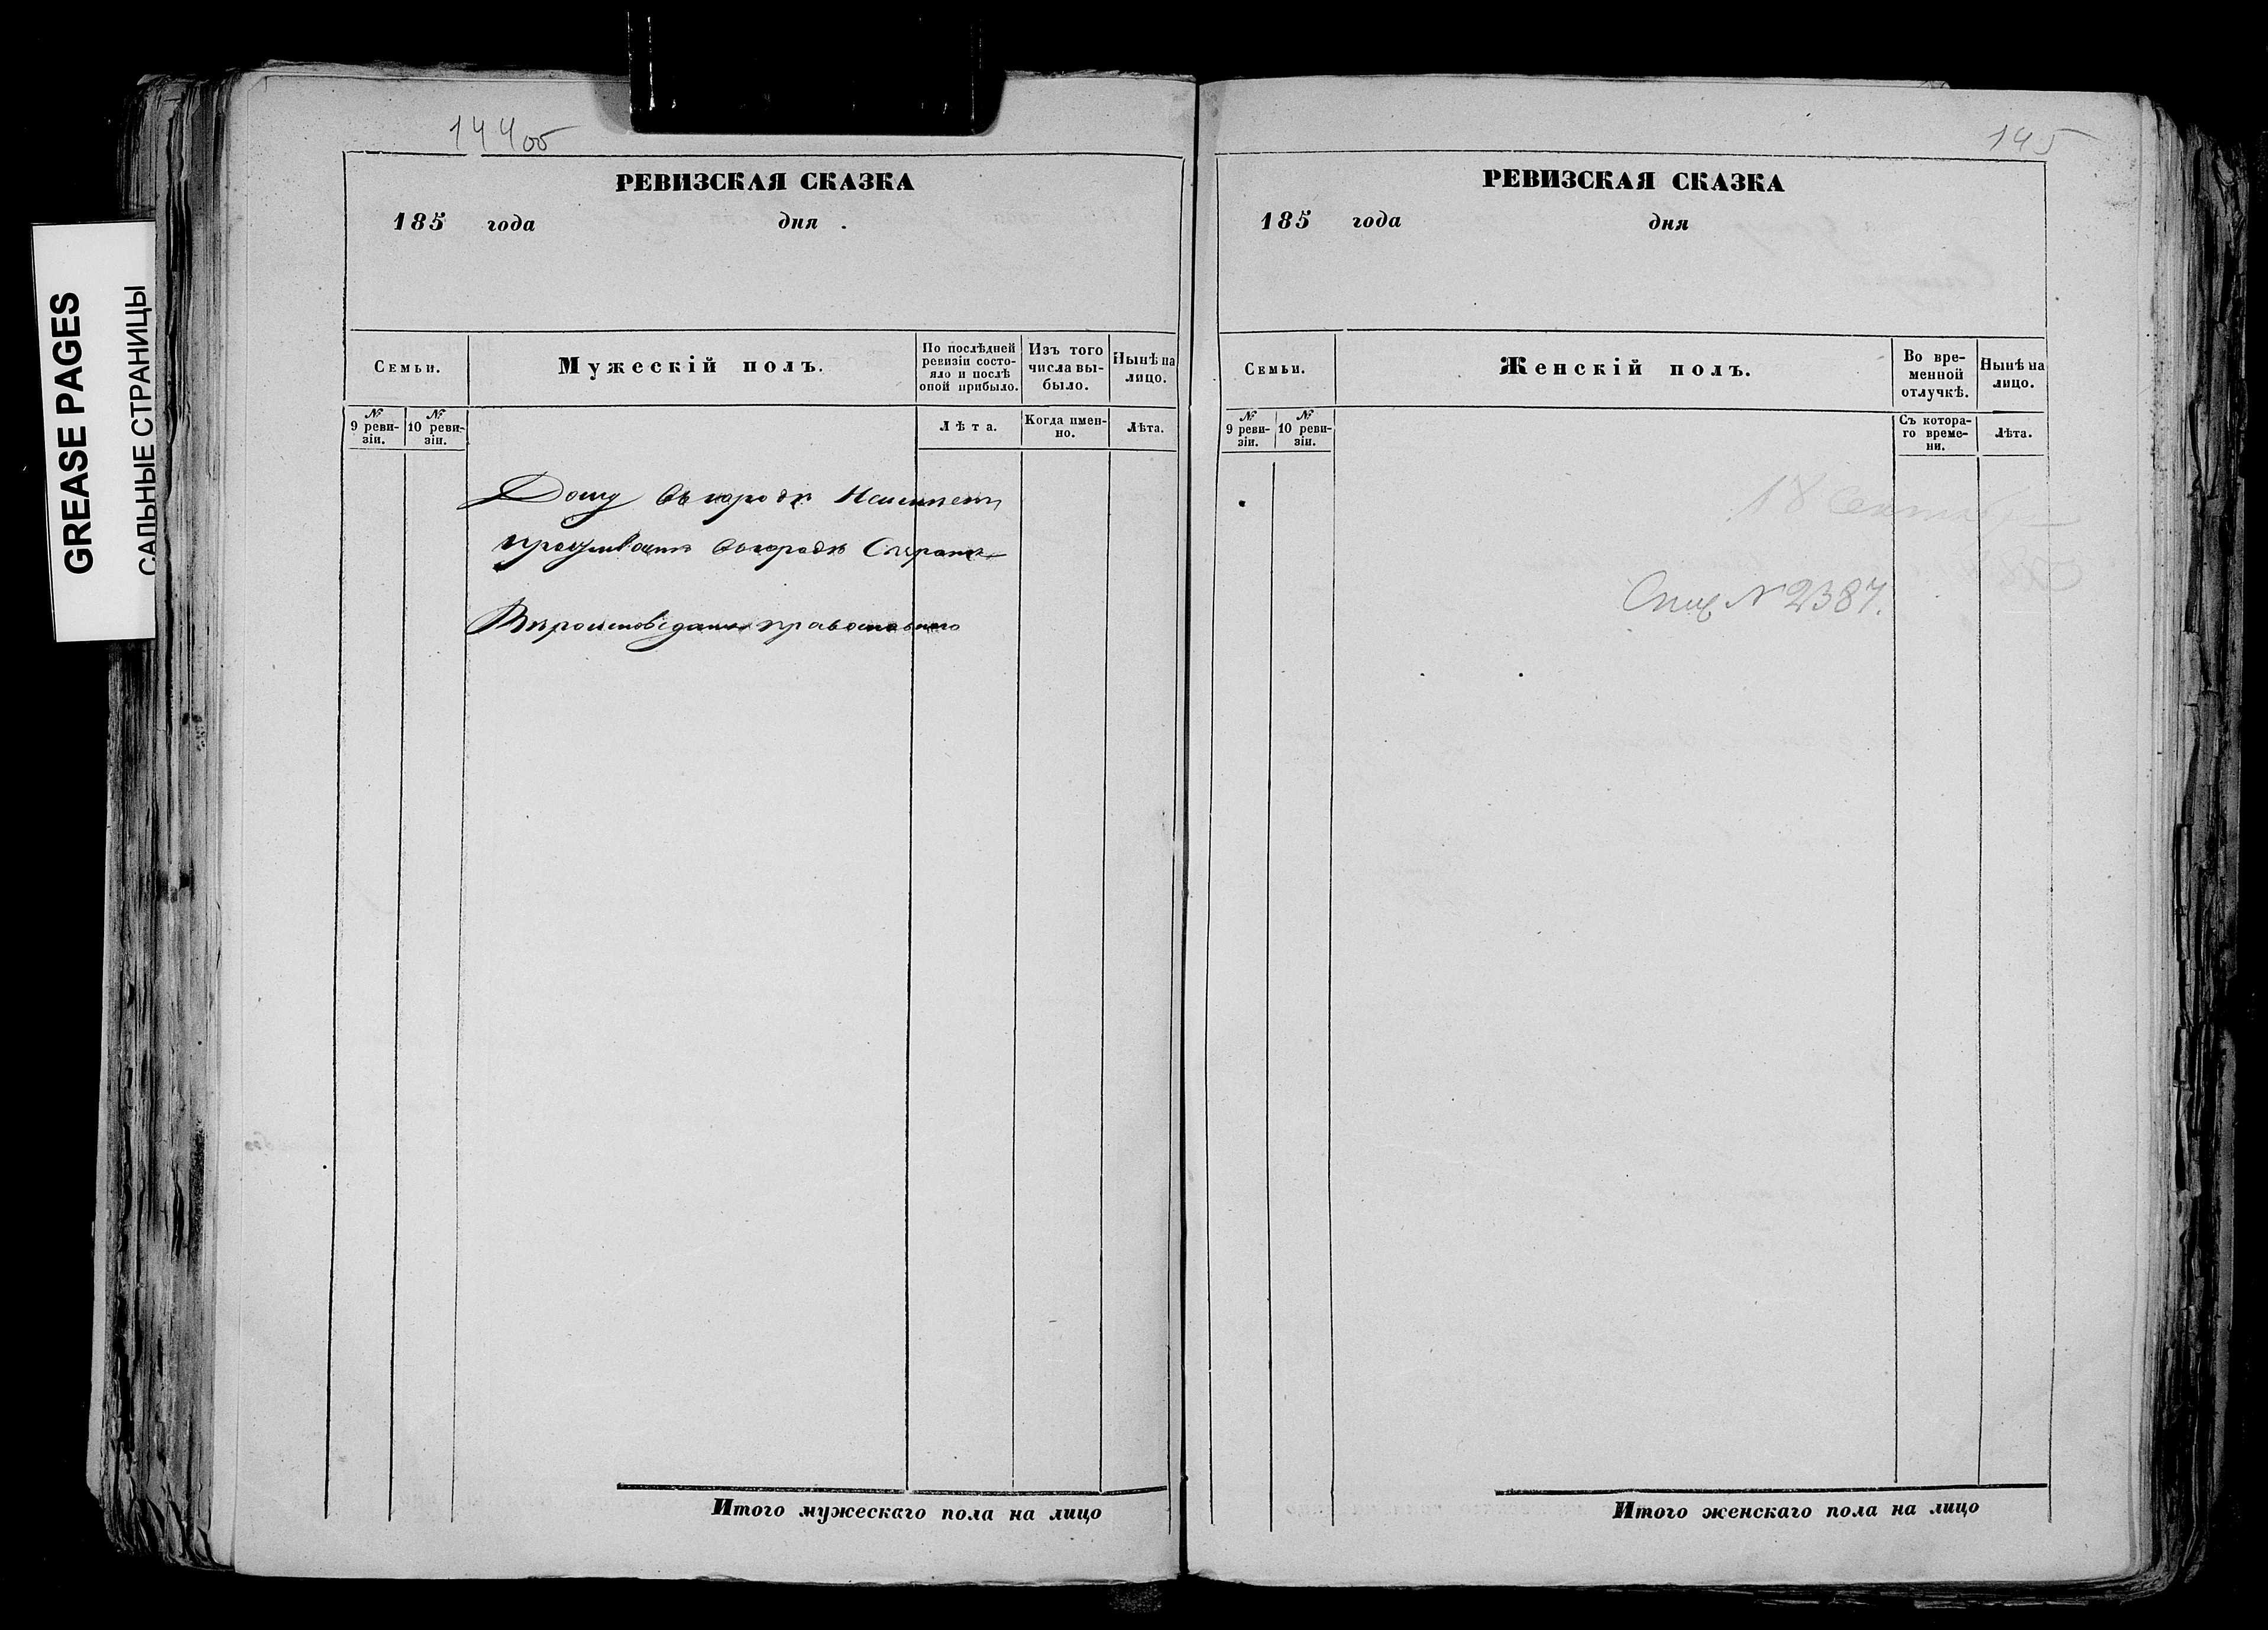 GREASE PAGES
САЛЬНЫЕ СТРАНИЦЫ
144об
РЕВИЗСКАЯ СКАЗКА
185 года дня
Семьи.
Мужескій полъ.
По послѣдней
ревизіи состо-
яло и послѣ
оной прибыло.
Изъ того
числа вы-
было.
Нынѣ на
лицо.
№
9 реви-
зіи.
№
10 реви-
зіи.
Лѣта.
Когда имен-
но.
Лѣта.
Дому въ городѣ Неимеетъ
проживаетъ въ городѣ
Вѣроисповѣданія православнаго
Итого мужескаго пола на лицо
145
РЕВИЗСКАЯ СКАЗКА
185 года дня
Семьи.
Женскій полъ.
Во вре-
менной
отлучкѣ.
Нынѣ на
лицо.
№
9 реви-
зіи.
№
10 реви-
зіи.
Съ котора-
го време-
ни.
Лѣта.
18
№ 2387.
Итого женскаго пола на лицо